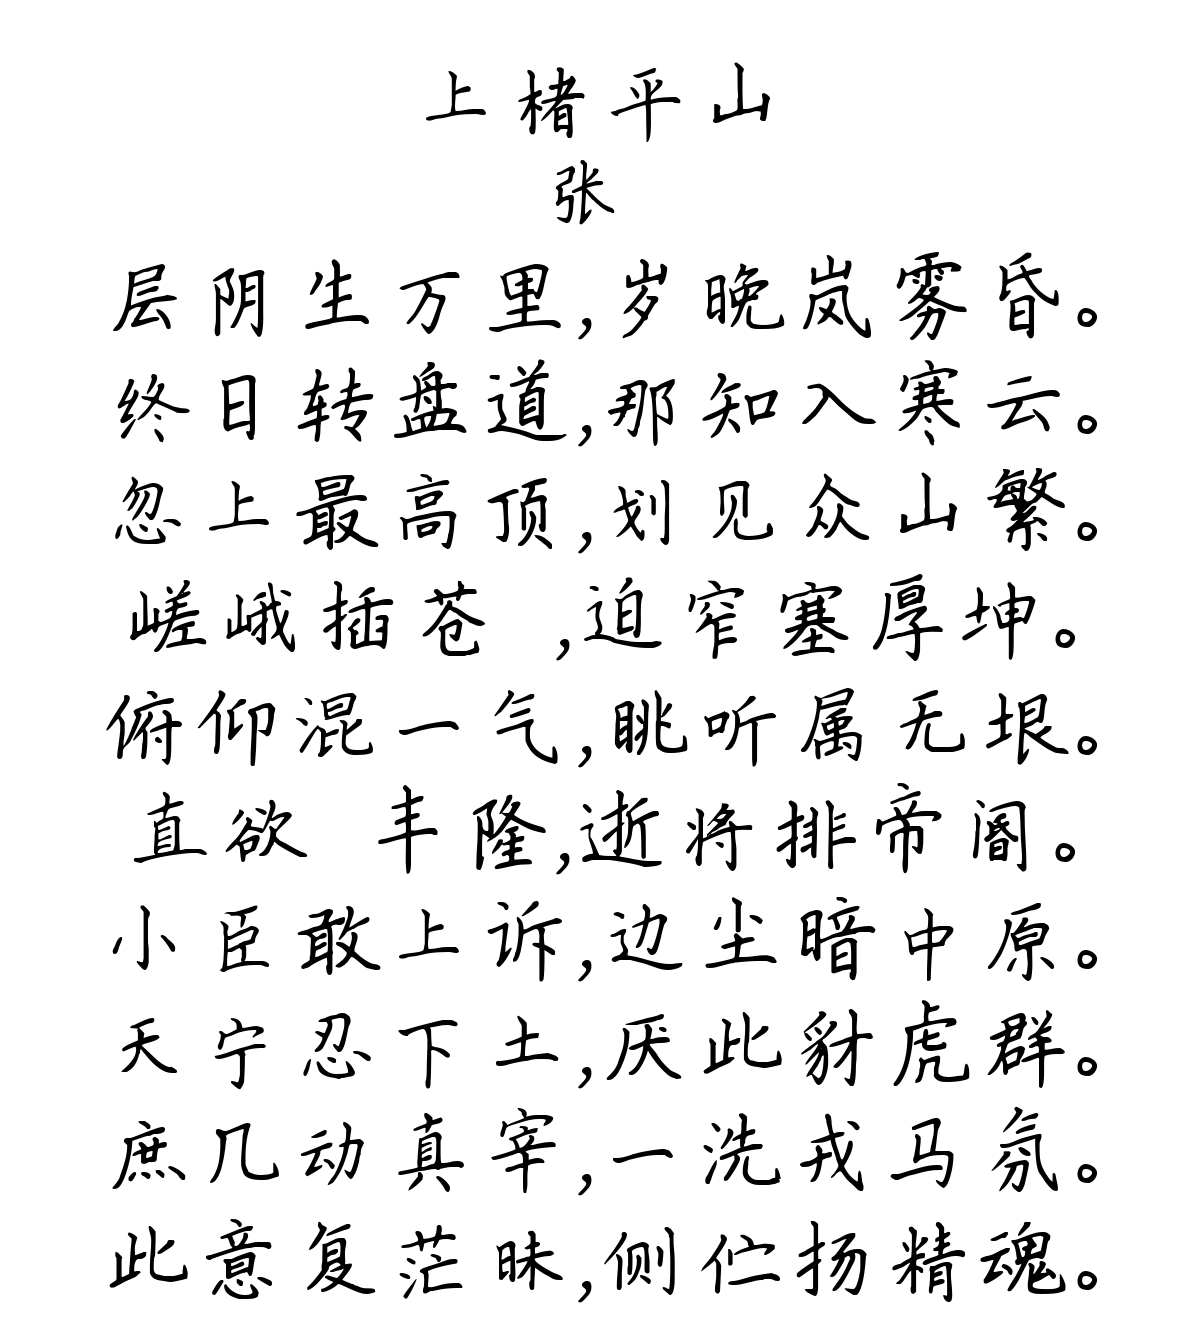 上楮平山
张
层阴生万里,岁晚岚雾昏。
终日转盘道,那知入寒云。
忽上最高顶,划见众山繁。
嵯峨插苍 ,迫窄塞厚坤。
俯仰混一气,眺听属无垠。
直欲 丰隆,逝将排帝阍。
小臣敢上诉,边尘暗中原。
天宁忍下土,厌此豺虎群。
庶几动真宰,一洗戎马氛。
此意复茫昧,侧伫扬精魂。